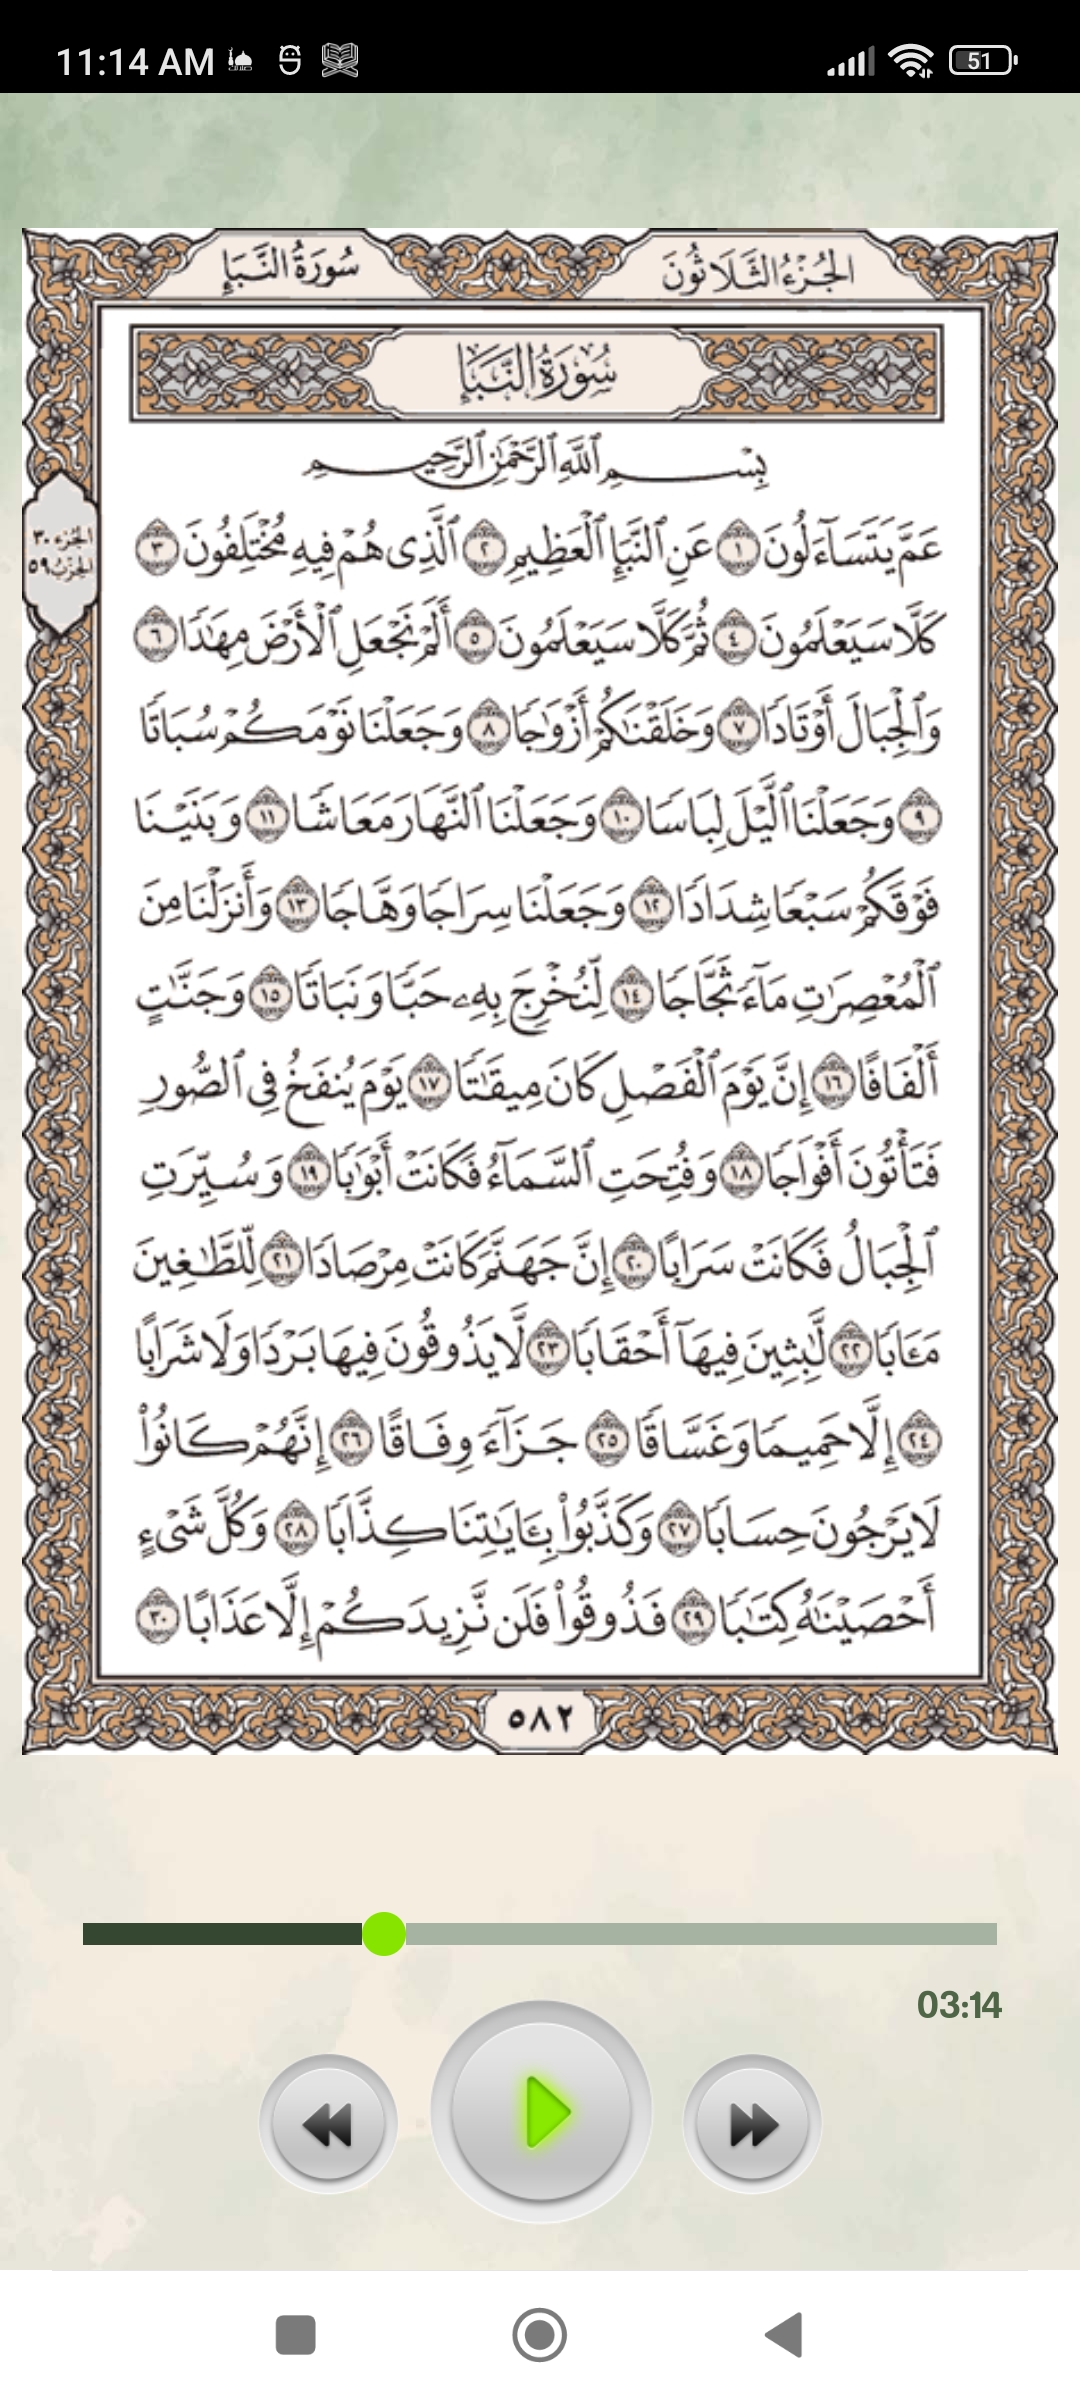 11:14 AM
51
الجُزْءُ الثَّلَاثُونَ
سُورَةُ النَّبَإِ
سُورَةُ النَّبَإِ
بِسْمِ ٱللَّهِ ٱلرَّحْمَٰنِ ٱلرَّحِيمِ
الجزء ٣٠
الحزب ٥٩
عَمَّ يَتَسَآءَلُونَ ١ عَنِ ٱلنَّبَإِ ٱلْعَظِيمِ ٢ ٱلَّذِى هُمْ فِيهِ مُخْتَلِفُونَ ٣
كَلَّا سَيَعْلَمُونَ ٤ ثُمَّ كَلَّا سَيَعْلَمُونَ ٥ أَلَمْ نَجْعَلِ ٱلْأَرْضَ مِهَٰدًا ٦
وَٱلْجِبَالَ أَوْتَادًا ٧ وَخَلَقْنَٰكُمْ أَزْوَٰجًا ٨ وَجَعَلْنَا نَوْمَكُمْ سُبَاتًا
٩ وَجَعَلْنَا ٱلَّيْلَ لِبَاسًا ١٠ وَجَعَلْنَا ٱلنَّهَارَ مَعَاشًا ١١ وَبَنَيْنَا
فَوْقَكُمْ سَبْعًا شِدَادًا ١٢ وَجَعَلْنَا سِرَاجًا وَهَّاجًا ١٣ وَأَنزَلْنَا مِنَ
ٱلْمُعْصِرَٰتِ مَآءً ثَجَّاجًا ١٤ لِّنُخْرِجَ بِهِۦ حَبًّا وَنَبَاتًا ١٥ وَجَنَّٰتٍ
أَلْفَافًا ١٦ إِنَّ يَوْمَ ٱلْفَصْلِ كَانَ مِيقَٰتًا ١٧ يَوْمَ يُنفَخُ فِى ٱلصُّورِ
فَتَأْتُونَ أَفْوَاجًا ١٨ وَفُتِحَتِ ٱلسَّمَآءُ فَكَانَتْ أَبْوَٰبًا ١٩ وَسُيِّرَتِ
ٱلْجِبَالُ فَكَانَتْ سَرَابًا ٢٠ إِنَّ جَهَنَّمَ كَانَتْ مِرْصَادًا ٢١ لِّلطَّٰغِينَ
مَـَٔابًا ٢٢ لَّٰبِثِينَ فِيهَآ أَحْقَابًا ٢٣ لَّا يَذُوقُونَ فِيهَا بَرْدًا وَلَا شَرَابًا
٢٤ إِلَّا حَمِيمًا وَغَسَّاقًا ٢٥ جَزَآءً وِفَاقًا ٢٦ إِنَّهُمْ كَانُوا۟
لَا يَرْجُونَ حِسَابًا ٢٧ وَكَذَّبُوا۟ بِـَٔايَٰتِنَا كِذَّابًا ٢٨ وَكُلَّ شَىْءٍ
أَحْصَيْنَٰهُ كِتَٰبًا ٢٩ فَذُوقُوا۟ فَلَن نَّزِيدَكُمْ إِلَّا عَذَابًا ٣٠
٥٨٢
03:14